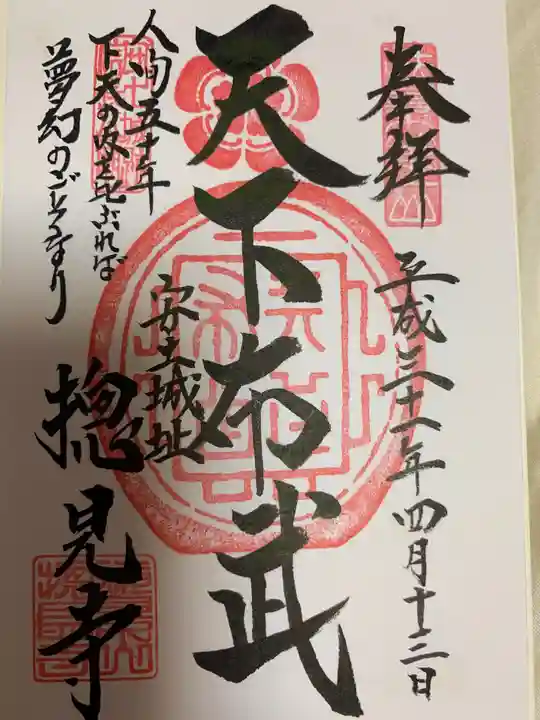 奉拝
平成三十一年四月十三日
天下布武
安土城址
人間五十年
下天の内を比ぶれば
夢幻のごとくなり
摠見寺